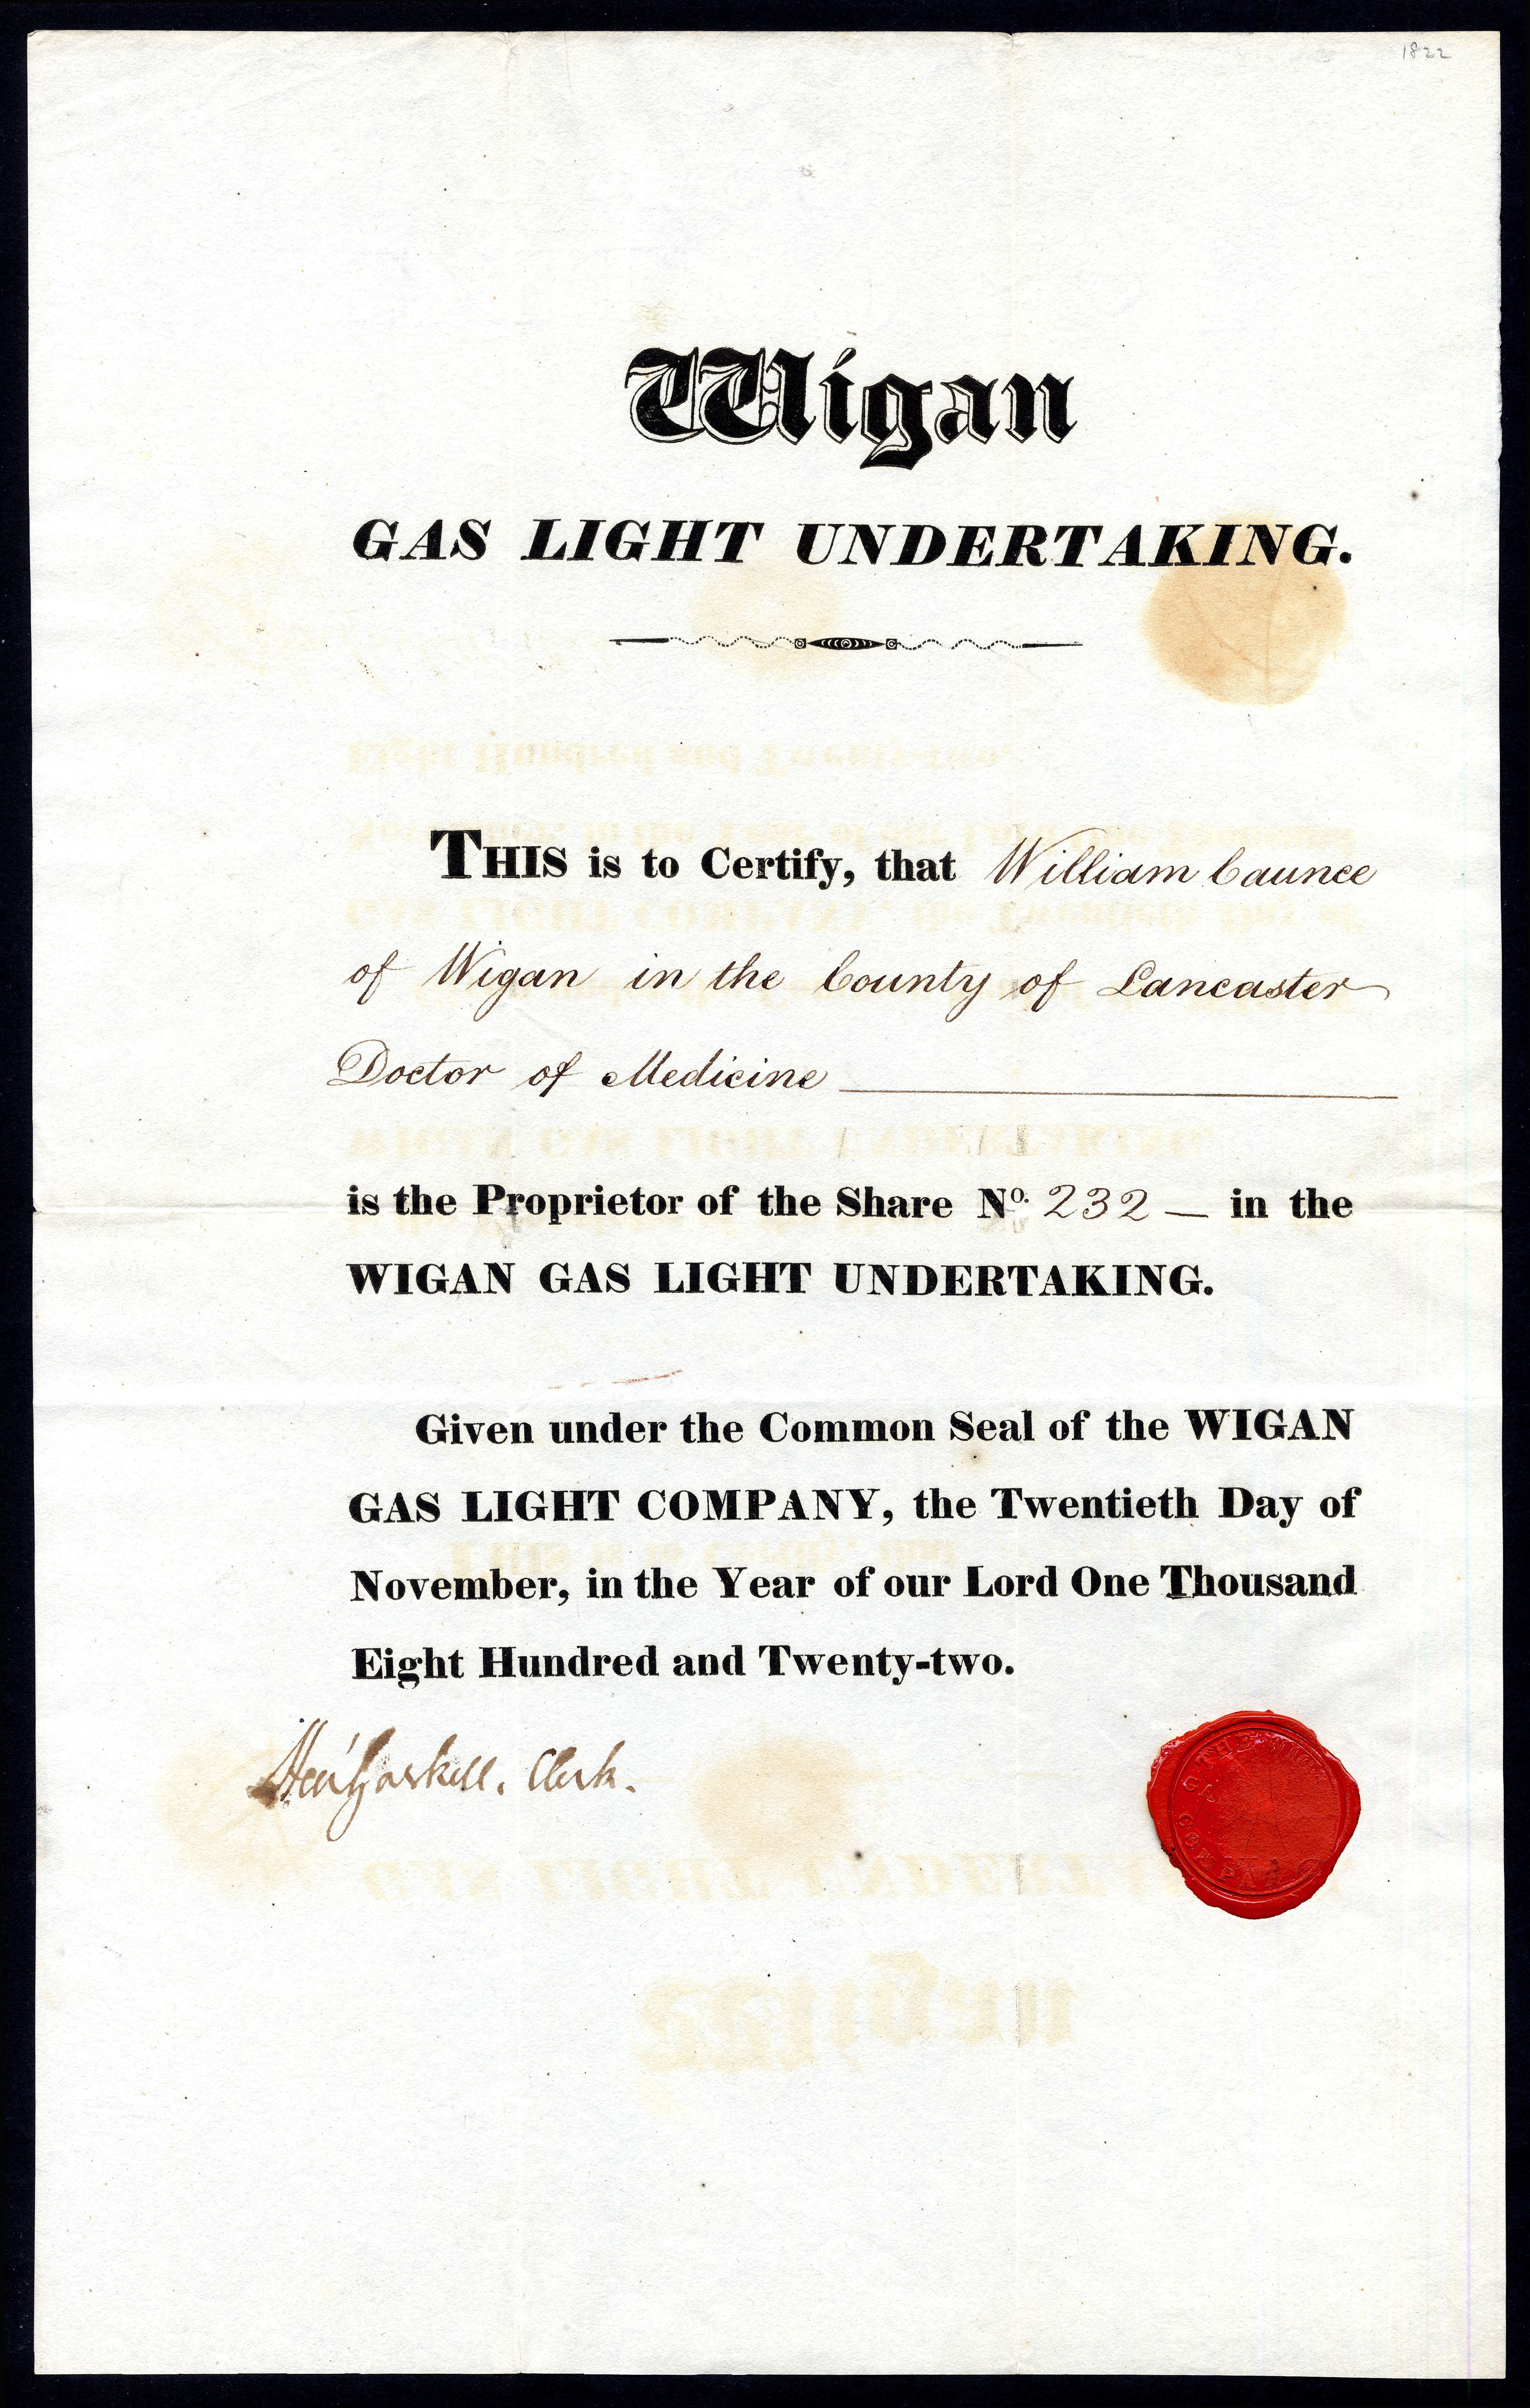 1822
Wigan
GAS LIGHT UNDERTAKING.
THIS is to Certify, that William Caunce
of Wigan in the County of Lancaster
Doctor of Medicine
is the Proprietor of the Share No. 232 — in the
WIGAN GAS LIGHT UNDERTAKING.
Given under the Common Seal of the WIGAN
GAS LIGHT COMPANY, the Twentieth Day of
November, in the Year of our Lord One Thousand
Eight Hundred and Twenty-two.
Hen Gaskell. Clerk.
THE WIGAN
COMPANY